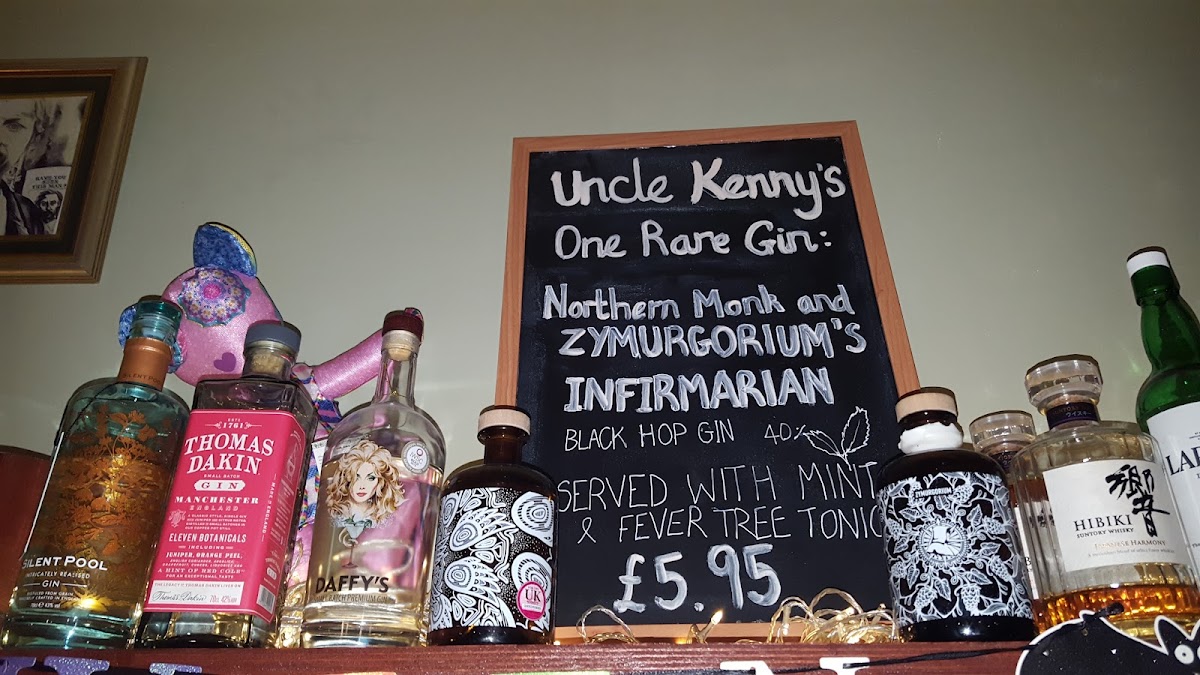 Uncle Kenny's
One Rare Gin:
Northern Monk and
ZYMURGORIUM'S
INFIRMARIAN
BLACK HOP GIN 40%
SERVED WITH MINT
& FEVER TREE TONIC
£5.95
SILENT POOL
INTRICATELY REALISED
GIN
ESTD
1761
THOMAS
DAKIN
SMALL BATCH
GIN
MANCHESTER
ENGLAND
ELEVEN BOTANICALS
INCLUDING
JUNIPER, ORANGE PEEL,
HINT OF RED COLE
FOR AN EXCEPTIONAL TASTE
70cl 42%
DAFFY'S
PREMIUM GIN
UK
ZYMURGORIUM
響
HIBIKI
SUNTORY WHISKY
JAPANESE HARMONY
ウイスキー
LA